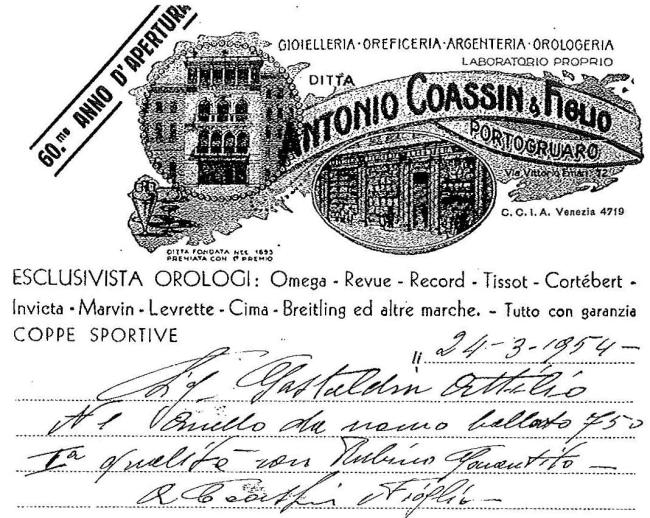 60.mo ANNO D'APERTURA
GIOIELLERIA·OREFICERIA·ARGENTERIA·OROLOGERIA
LABORATORIO PROPRIO
DITTA
ANTONIO COASSIN & FIGLIO
PORTOGRUARO
Via Vittorio Eman. 12
C. C. I. A. Venezia 4719
DITTA FONDATA NEL 1893
PREMIATA CON 1º PREMIO
ESCLUSIVISTA OROLOGI: Omega - Revue - Record - Tissot - Cortébert -
Invicta - Marvin - Levrette - Cima - Breitling ed altre marche. - Tutto con garanzia
COPPE SPORTIVE
lì 24-3-1954-
Sig. Gastaldin Attilio
N 1 Anello da uomo bollato 750
Iª qualità con Rubino Garantito -
A Coassin & Figlio -